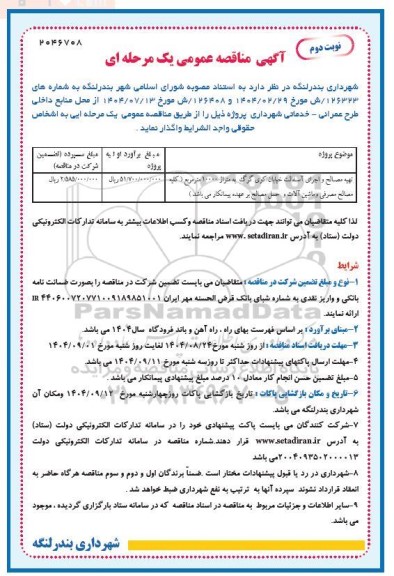 نوبت دوم
۲۰۴۶۷۰۸
آگهی مناقصه عمومی یک مرحله ای
شهرداری بندرلنگه در نظر دارد به استناد مصوبه شورای اسلامی شهر بندرلنگه به شماره های
۱۲۶۳۲۳/ش مورخ ۱۴۰۴/۰۲/۲۹ و ۱۲۶۴۰۸/ش مورخ ۱۴۰۴/۰۷/۱۳ از محل منابع داخلی
طرح عمرانی - خدماتی شهرداری پروژه ذیل را از طریق مناقصه عمومی یک مرحله ایی به اشخاص
حقوقی واجد الشرایط واگذار نماید .
موضوع پروژه
مبلغ برآورد اولیه پروژه
مبلغ سپرده (تضمین شرکت در مناقصه)
تهیه مصالح و اجرای آسفالت خیابان کوی گرگ به متراژ ۱۰۰۰۰ مترمربع (کلیه
مصالح مصرفی و ماشین آلات و حمل مصالح بر عهده پیمانکار می باشد)
۵۱/۷۰۰/۰۰۰/۰۰۰ ریال
۲/۵۸۵/۰۰۰/۰۰۰ ریال
لذا کلیه متقاضیان می توانند جهت دریافت اسناد مناقصه و کسب اطلاعات بیشتر به سامانه تدارکات الکترونیکی
دولت (ستاد) به آدرس www.setadiran.ir مراجعه نمایند.
شرایط
۱-نوع و مبلغ تضمین شرکت در مناقصه : متقاضیان می بایست تضمین شرکت در مناقصه را بصورت ضمانت نامه
بانکی و واریز نقدی به شماره شبای بانک قرض الحسنه مهر ایران ۴۴۰۶۰۰۷۲۰۷۷۱۰۰۹۱۸۹۸۵۱۰۰۱ m
ارائه نمایند.
۲-مبنای برآورد : بر اساس فهرست بهای راه ، راه آهن و باند فرودگاه سال ۱۴۰۴ می باشد.
۳-مهلت دریافت اسناد مناقصه : از روز شنبه مورخ ۱۴۰۴/۰۸/۲۴ لغایت روز شنبه مورخ ۱۴۰۴/۰۹/۰۱
۴-مهلت ارسال پاکتهای پیشنهادات حداکثر تا روز سه شنبه مورخ ۱۴۰۴/۰۹/۱۱ می باشد.
۵-مبلغ تضمین حسن انجام کار معادل ۱۰ درصد مبلغ پیشنهادی پیمانکار می باشد .
۶-تاریخ و مکان بازگشایی پاکات : تاریخ بازگشایی پاکات روز چهارشنبه مورخ ۱۴۰۴/۰۹/۱۲ ومکان آن
شهرداری بندرلنگه می باشد.
۷-شرکت کنندگان می بایست پاکت پیشنهادی خود را در سامانه تدارکات الکترونیکی دولت (ستاد)
به آدرس www.setadiran.ir قرار دهند.شماره مناقصه در سامانه تدارکات الکترونیکی دولت
۲۰۰۴۰۹۳۵۰۲۰۰۰۰۱۳ می باشد
۸-شهرداری در رد یا قبول پیشنهادات مختار است .ضمناً برندگان اول و دوم و سوم مناقصه هرگاه حاضر به
انعقاد قرارداد نشوند سپرده آنها به ترتیب به نفع شهرداری ضبط خواهد شد .
۹-سایر اطلاعات و جزئیات مربوط به مناقصه در اسناد مناقصه که در سامانه ستاد بارگزاری گردیده ، موجود
می باشد.
شهرداری بندرلنگه